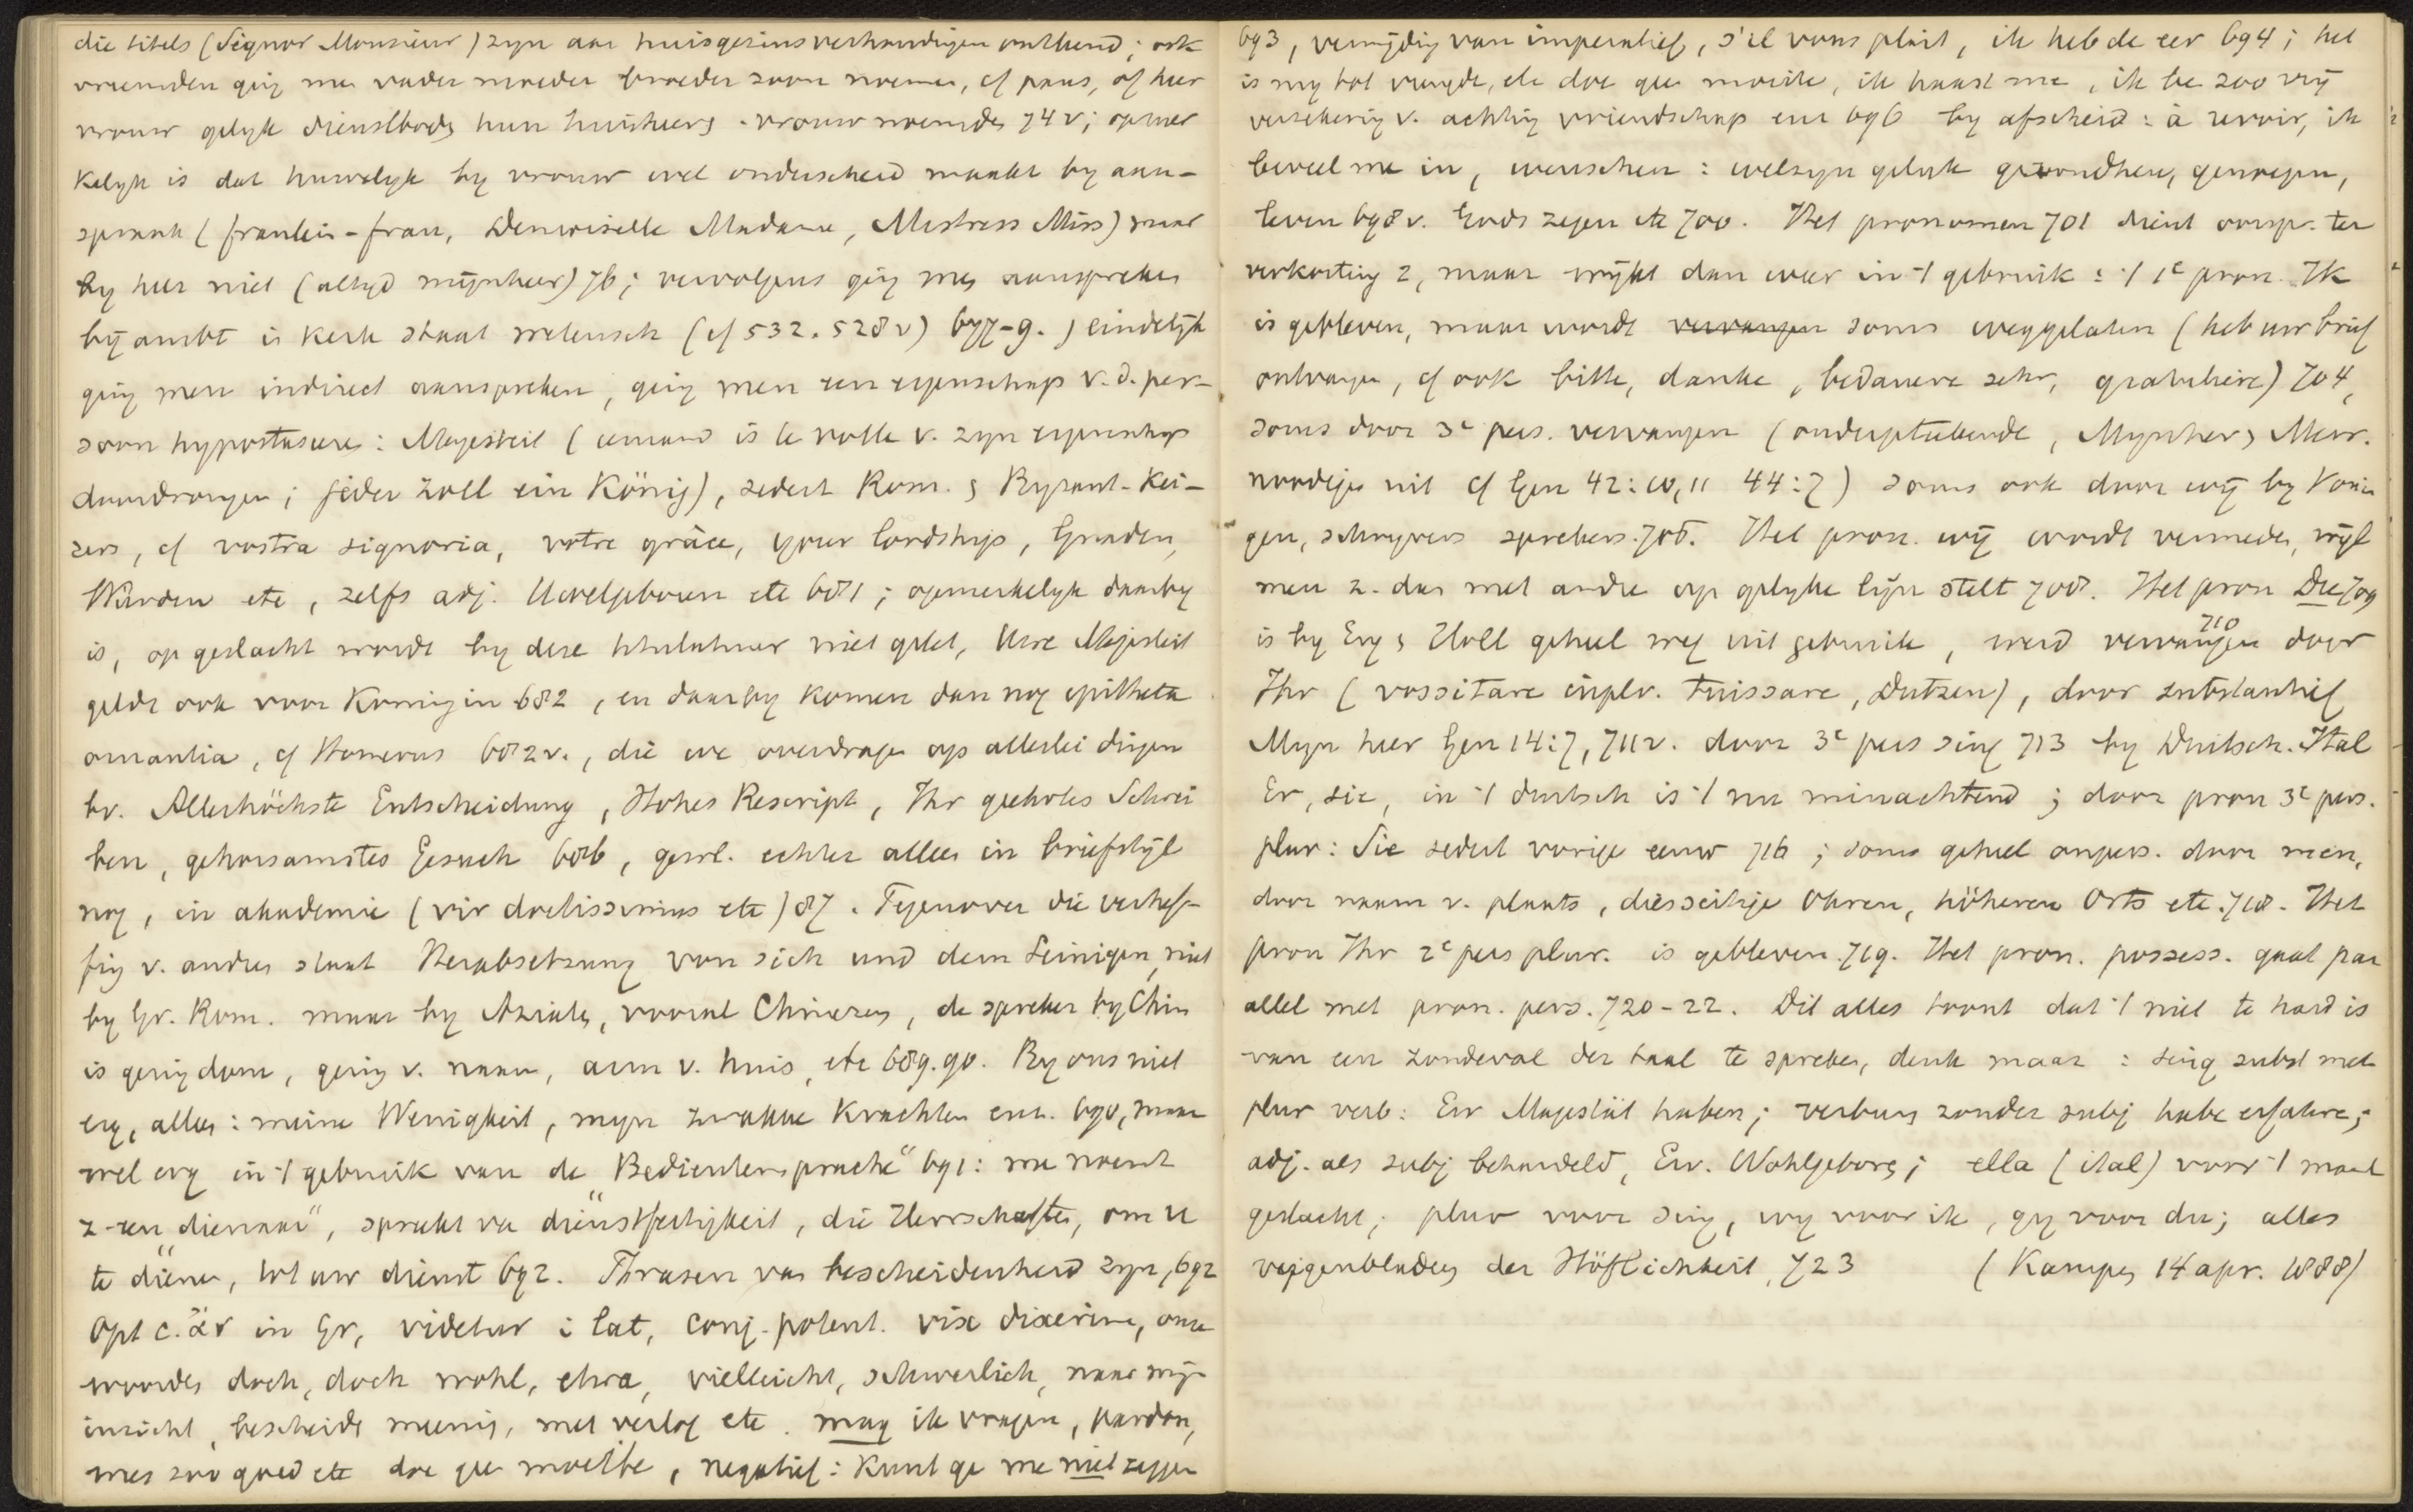 die titels (Signor Monsieur) zyn aan huisgezinsverhoudingen ontleend; ook
vreemden ging me vader moeder broeder zoon noemen, cf paus, of heer
vrouw gelyk dienstboden hun huisheer en -vrouw noemden 74v; opmer
kelyk is dat huwelyk by vrouw wel onderscheid maakt by aan-
spraak (fraulein-frau, Demoiselle Madame, Mistress Miss) maar
by heer niet (altyd mijnheer) 76; vervolgens ging men aanspreken
bij ambt in Kerk staat wetensch (cf 532.528v) 677-9.; eindelijk
ging men indirect aanspreken, ging men een eigenschap v.d. per-
soon hypostaseren: Majesteit (iemand is te volle v. zyn eigenschap
doordrongen; jeder Zoll ein König), sedert Rom. en Byzant. Kei-
zers, cf vostra signoria, votre grâce, your lordship, Gnaden,
Würden etc, zelfs adj. Uwelgeboren etc 681; opmerkelyk daarby
is, op geslacht wordt by deze titulatuur niet gelet, Uwe Majesteit
geldt ook voor Koningin 682, en daarby komen dan nog epitheta
ornantia, cf Homerus 682v., die we overdragen op allerlei dingen
bv. Allerhöchste Entscheidung, Hohes Rescript, Ihr geehrtes Schrei
ben, gehorsamstes Gesuch 686, gewl. echter alleen in briefstijl
nog, in akademie (vir doctissimus etc) 87. Tegenover die verhef-
fing v. andren staat Herabsetzung von sich und dem Seinigen, niet
by Gr. Rom. maar by Aziaten, vooral Chinezen, de spreker by Chin
is gering dom, gering v. naam, arm v. huis, etc 689.90. By ons niet
erg, alleen: meine Wenigkeit, myn zwakke Krachten enz. 690, maar
wel erg in 't gebruik van de "Bedientensprache" 691: me noemt
z. een "dienaar", spreekt van dienstfertigkeit, die Herrschaften, om u
te "dienen, tot uw dienst 692. Phrasen van bescheidenheid zyn, 692
Opt c. ἄν in Gr, videtur i Lat, conj. potent. vix dixerim, onze
woorden doch, doch wohl, etwa, vielleicht, schwerlich, naar mijn
inzicht, bescheiden meening, met verlof etc. mag ik vragen, pardon,
wees zoo goed etc doe geen moeite, negatief: Kunt ge me niet zeggen
693, vermijding van imperatief, s'il vous plait, ik heb de eer 694; het
is my tot vreugde, etc doe geen moeite, ik haast me, ik be zoo vrij
verzekering v. achting vriendschap enz 696 by afscheid: à revoir, ik
beveel me in, wenschen: welzyn geluk gezondheid, genoegen,
leven 698v. Gods zegen etc 700. Het pronomen 701 dient oorspr. ter
verkorting z, maar wijkt dan weer in 't gebruik: 't 1e pron. Ik
is gebleven, maar wordt vervangen soms weggelaten (heb uw brief
ontvangen, cf ook bitte, danke, bedauere sehr, gratuliere) 704,
soms door 3e pers. vervangen (ondergeteekende, Mynheer en Mevr.
noodigen uit cf Gen 42:10,11 44:7) soms ook door wij by Konin
gen, schryvers sprekers. 705. Het pron. wij wordt vermeden, wijl
men z. dan met andre op gelyke lijn stelt 708. Het pron Du 709
is by Eng en Holl geheel weg uit gebruik, werd vervangen 710 door
Ihr (vossitare inplv. tuissare, Dutzen), door substantief
Myn heer Gen 14:7, 711v. door 3e pers sing 713 by Duitsch. Ital
Er, sie, in 't duitsch is 't nu minachtend; door pron 3e pers.
plur: Sie sedert vorige eeuw 716; soms geheel onpers. door men,
door naam v. plaats, diesseitige Ohren, höheren Orts etc. 718. Het
pron Ihr 2e pers plur. is gebleven. 719. Het pron. possess. gaat par
allel met pron. pers. 720-22. Dit alles toont dat 't niet te hard is
van een zondeval der taal te spreken, denk maar: sing subst met
plur verb: Ew Majestät haben; verbum zonder subj habe erfahren;
adj. als subj behandeld, Ew. Wohlgeboren; ella (ital) voor 't manl
geslacht; plur voor sing, wy voor ik, gy voor du; alles
vijgenbladen der Höflichkeit, 723 (Kampen 14 apr. 1888)